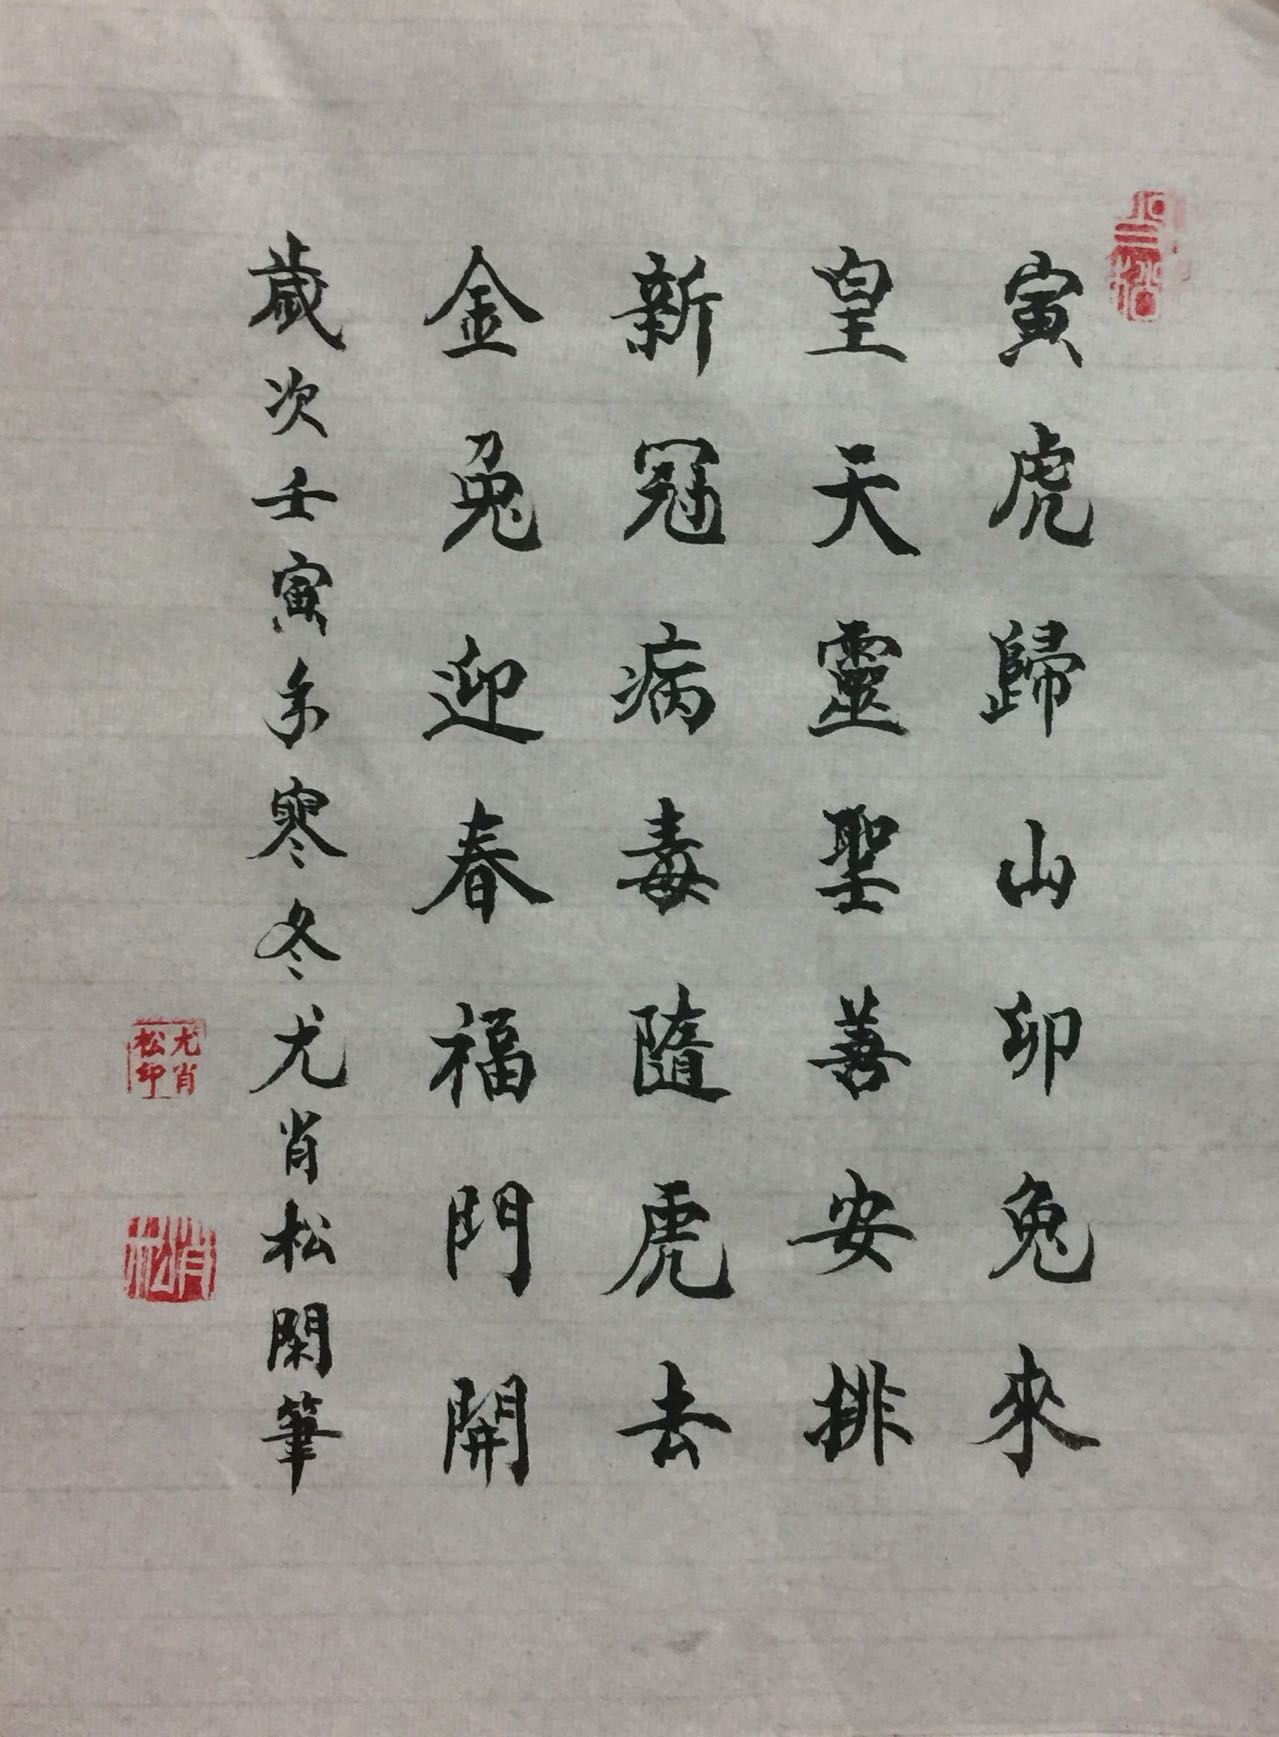 寅虎歸山卯兔來
皇天靈聖善安排
新冠病毒隨虎去
金兔迎春福門開
歲次壬寅年寒冬尤肖松閑筆
尤肖松印
肖松